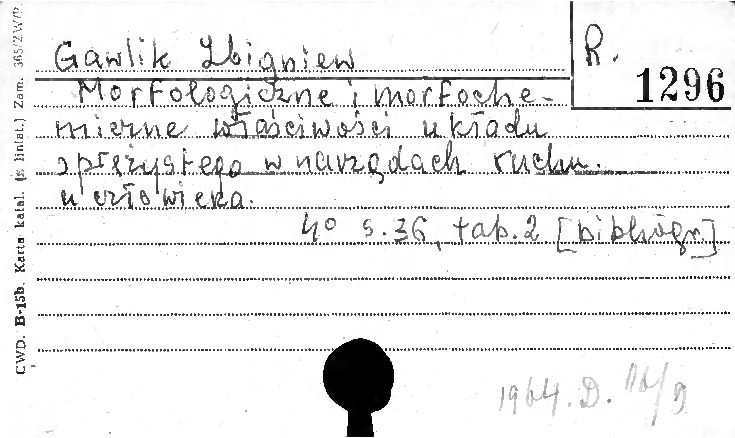 Gawlik Zbigniew
R. 1296
Morfologiczne i morfoche-
miczne właściwości układu
sprężystego w narządach ruchu
u człowieka.
4° s. 36, tab. 2 [bibliogr.]
1964. D. 116/9
CWD. B-15b. Karta katal. (z liniat.) Zam. 365/ZW/P.